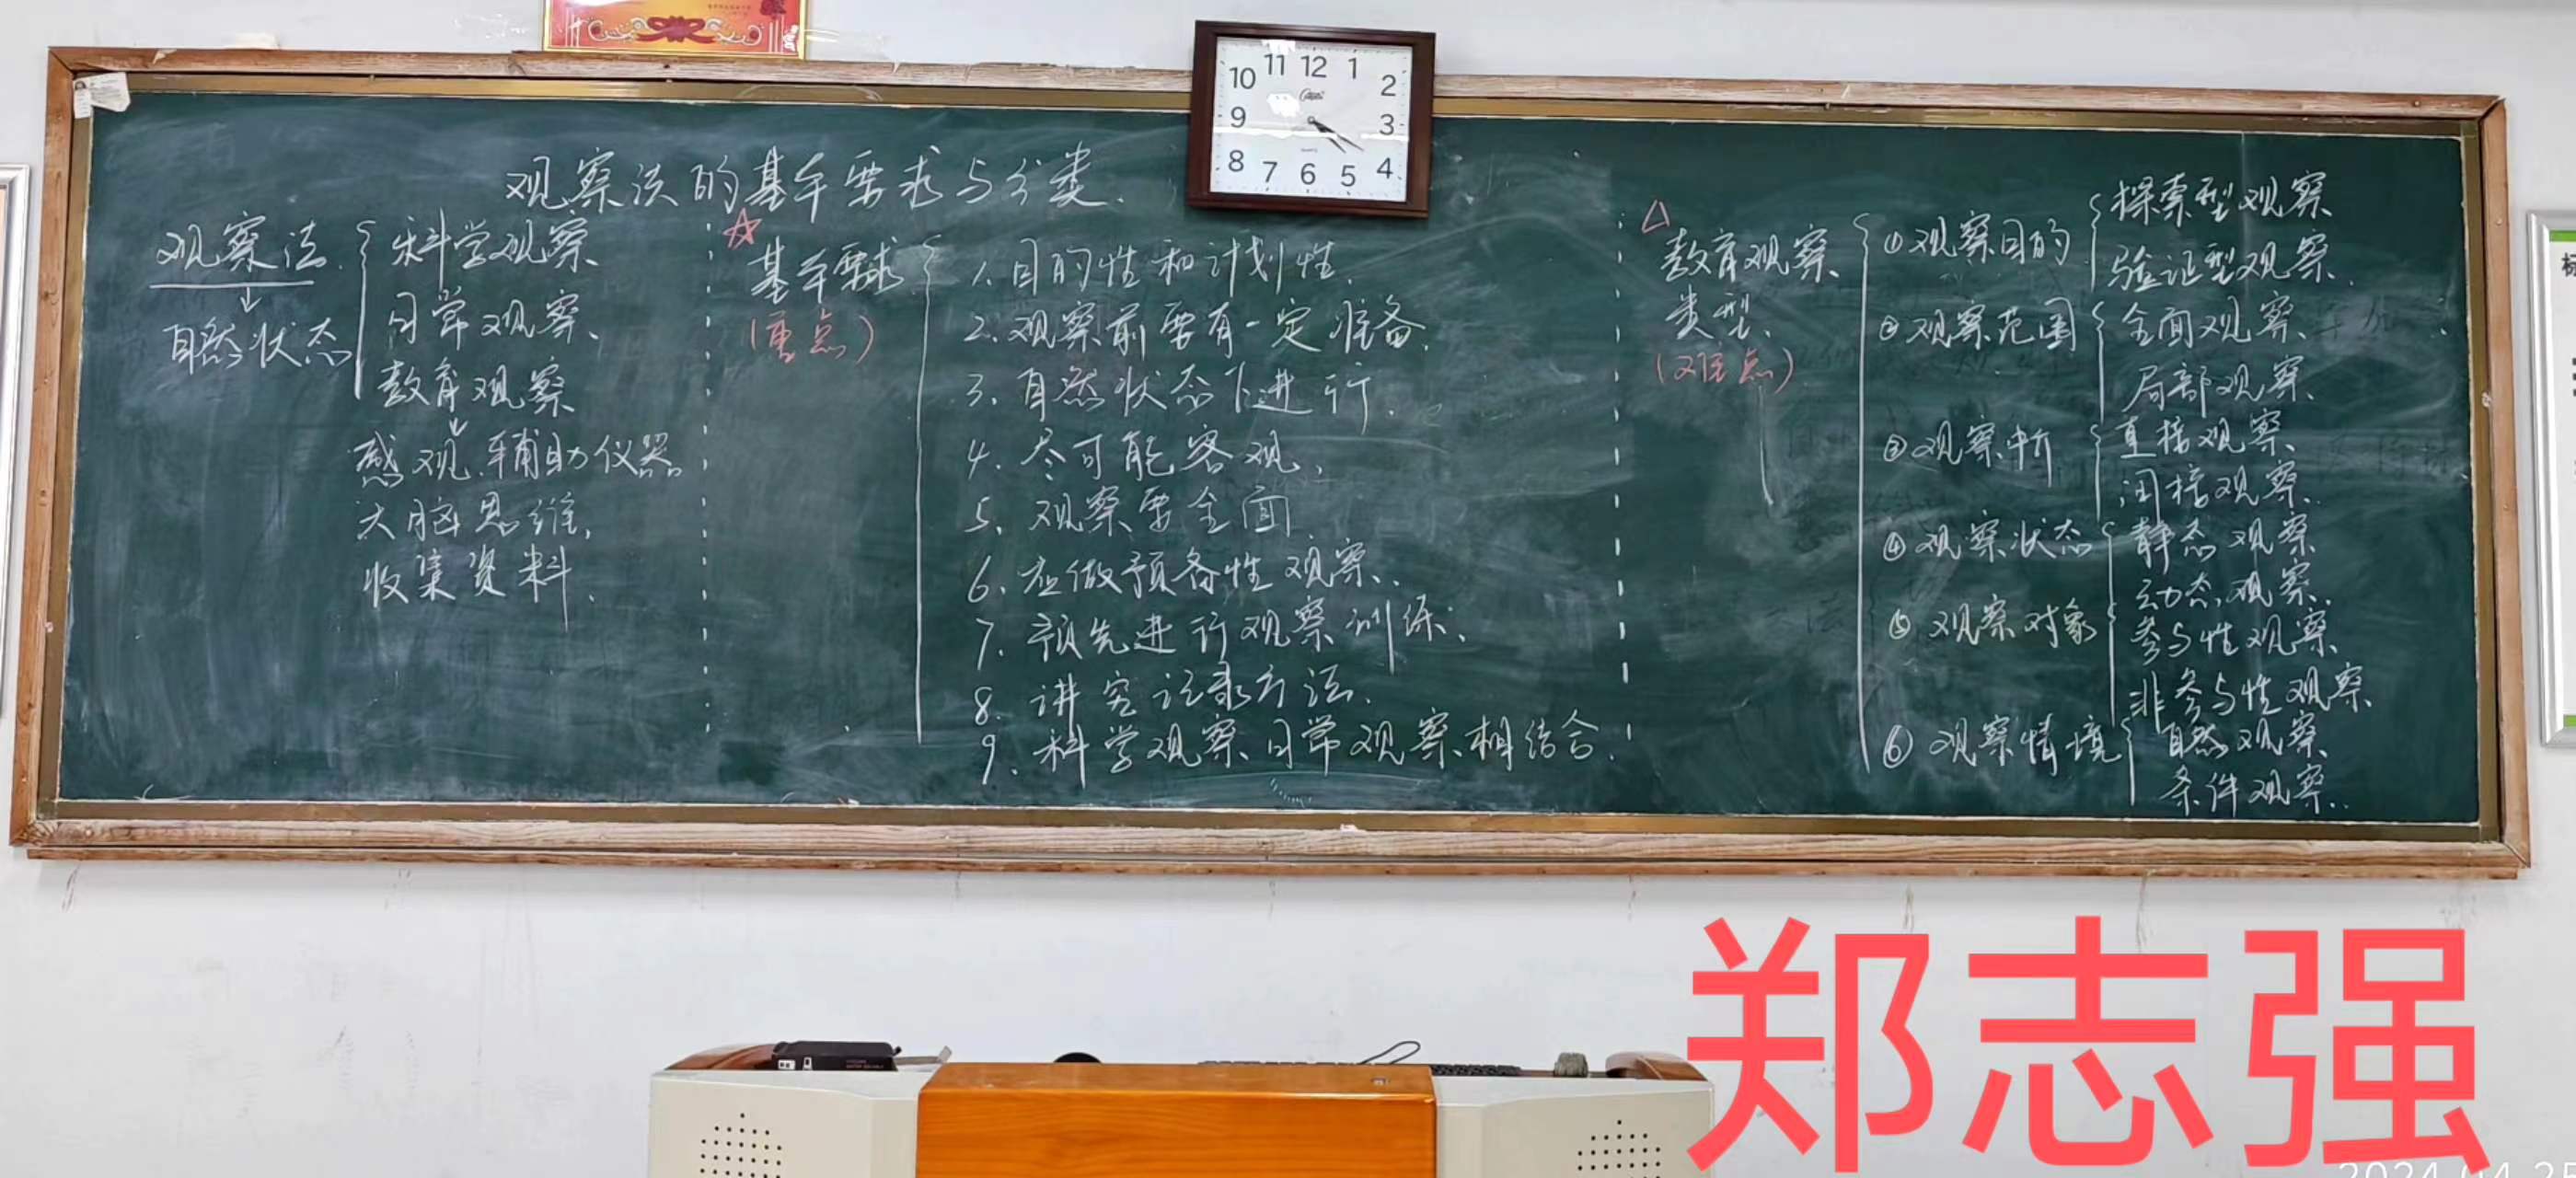 观察法的基本要求与分类.
观察法.
↓
自然状态
科学观察
日常观察、
教育观察
↓
感观.辅助仪器.
大脑思维,
收集资料.
☆
基本要求
(重点)
1.目的性和计划性.
2.观察前要有一定准备.
3.自然状态下进行.
4.尽可能客观.
5.观察要全面.
6.应做预备性观察.
7.预先进行观察训练.
8.讲究记录方法.
9.科学观察、日常观察相结合.
△
教育观察
类型.
(难点)
①观察目的
探索型观察
验证型观察.
②观察范围
全面观察、
局部观察、
③观察中介
直接观察、
间接观察.
④观察状态
静态观察
动态观察.
⑤观察对象
参与性观察、
非参与性观察
⑥观察情境
自然观察、
条件观察.
10 11 12 1 2
9 3
8 7 6 5 4
QUARTZ
郑志强
2024-04-25